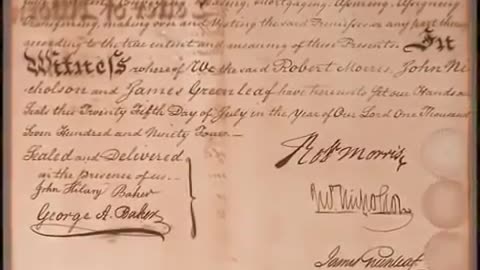 Leasing, mortgaging,
making over and Vesting the said Premises or any part there
according to the true intent and meaning of these Presents. In
Witness whereof We the said Robert Morris, John Ni
cholson and James Greenleaf have hereunto Set our Hands and
Seals this Twenty Fifth Day of July in the Year of Our Lord One Thousand
Seven Hundred and Ninety Four.—
Sealed and Delivered
in the presence of us.-
John Hilary Baker
George A. Baker
Robt Morris
Jno Nicholson
James Greenleaf